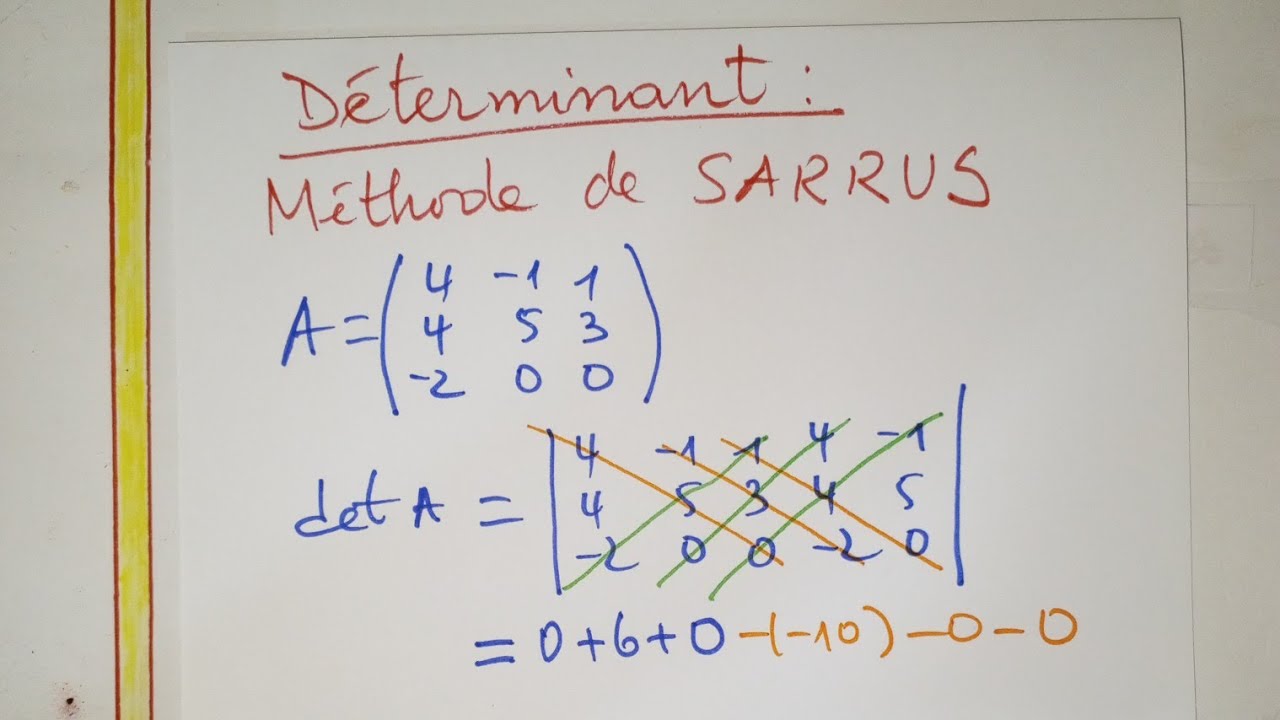 Déterminant :
Méthode de SARRUS
A = ( 4 -1 1
4 5 3
-2 0 0 )
det A = | 4 -1 1 4 -1
4 5 3 4 5
-2 0 0 -2 0 |
= 0 + 6 + 0 - (-10) - 0 - 0